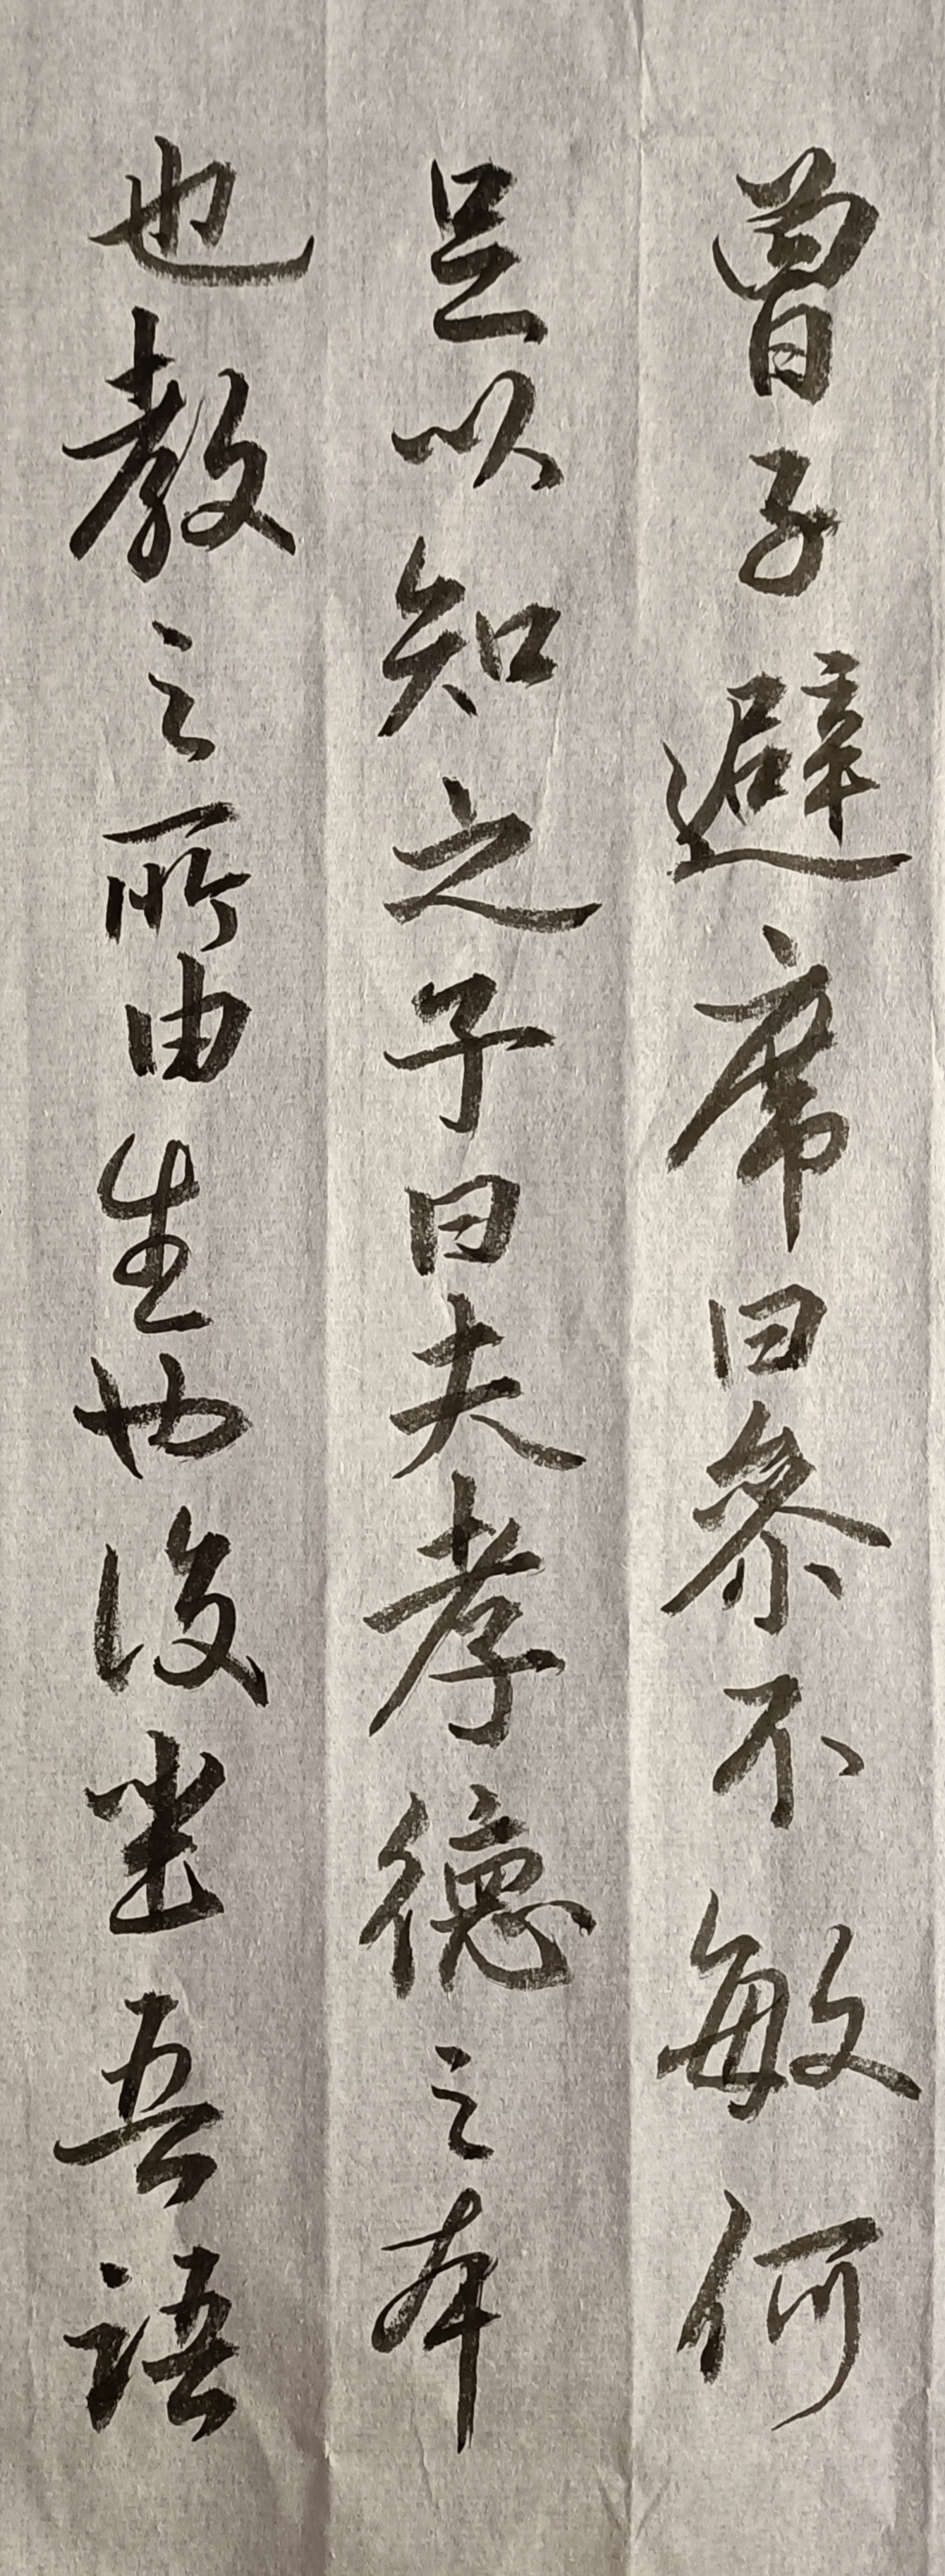 曽子避席曰参不敏何
足以知之子曰夫孝德之本
也教之所由生也復坐吾語